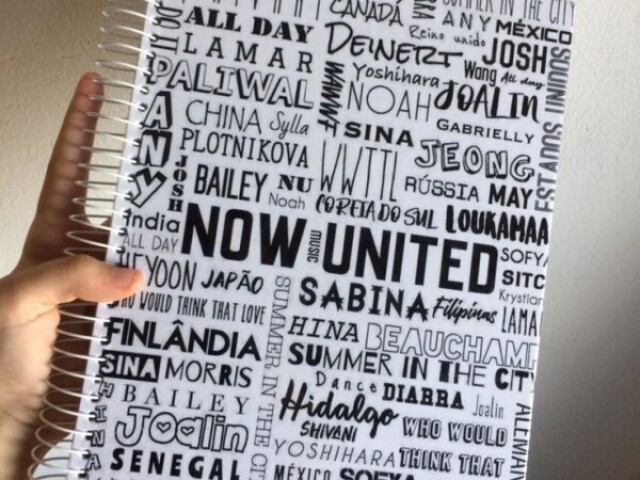 CANADÁ
SUMMER IN THE CITY
ANY MÉXICO
ALL DAY
DEINERT
Reino unido
JOSH
LAMAR
Yoshihara
Wang All day
PALIWAL
NOAH
JOALIN
ANY
CHINA Sylla
SINA
GABRIELLY
PLOTNIKOVA
WWTTL
JEONG
JOSH
BAILEY NU
RÚSSIA MAY
Noah
COREIA DO SUL
LOUKAMAA
India
ALL DAY
NOW UNITED
MUSIC
SOFYA
HEYOON JAPÃO
SABINA
Filipinas
SITC
Krystian
WHO WOULD THINK THAT LOVE
LAMA
HINA
BEAUCHAMP
FINLÂNDIA
SUMMER IN THE CITY
SUMMER IN THE CITY
SINA MORRIS
Dance DIARRA Joalin
BAILEY
Hidalgo
SHIVANI
WHO WOULD
HINA
Joalin
YOSHIHARA
THINK THAT
ALEMAN
SENEGAL
MÉXICO SOFYA